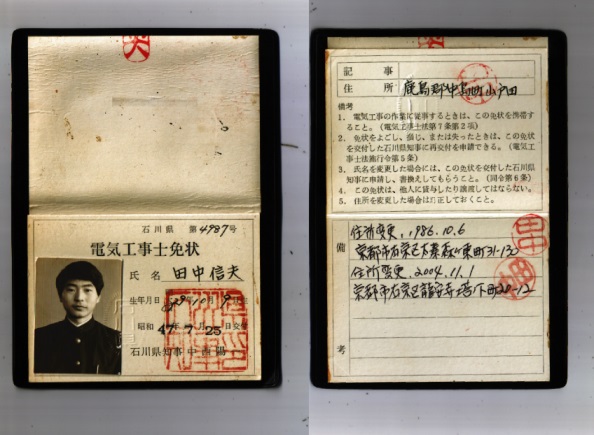 石川県 第4987号
電気工事士免状
氏名 田中信夫
生年月日 29年10月9日生
昭和47年7月25日交付
石川県知事中西陽一
記事
住所 鹿島郡中島町小戸田
備考
1. 電気工事の作業に従事するときは、この免状を携帯す
ること。(電気工事士法第7条第2項)
2. 免状をよごし、損じ、または失ったときは、この免状
を交付した石川県知事に再交付を申請できる。(電気工
事士法施行令第5条)
3. 氏名を変更した場合には、この免状を交付した石川県
知事に申請し、書換えしてもらうこと。(同令第6条)
4. この免状は、他人に貸与したり譲渡してはならない。
5. 住所を変更した場合は訂正しておくこと。
備考
住所変更、1986.10.6
京都市右京区太秦森ヶ東町31-13
住所変更、2004.11.1
京都市右京区龍安寺塔ノ下町20-12
田中